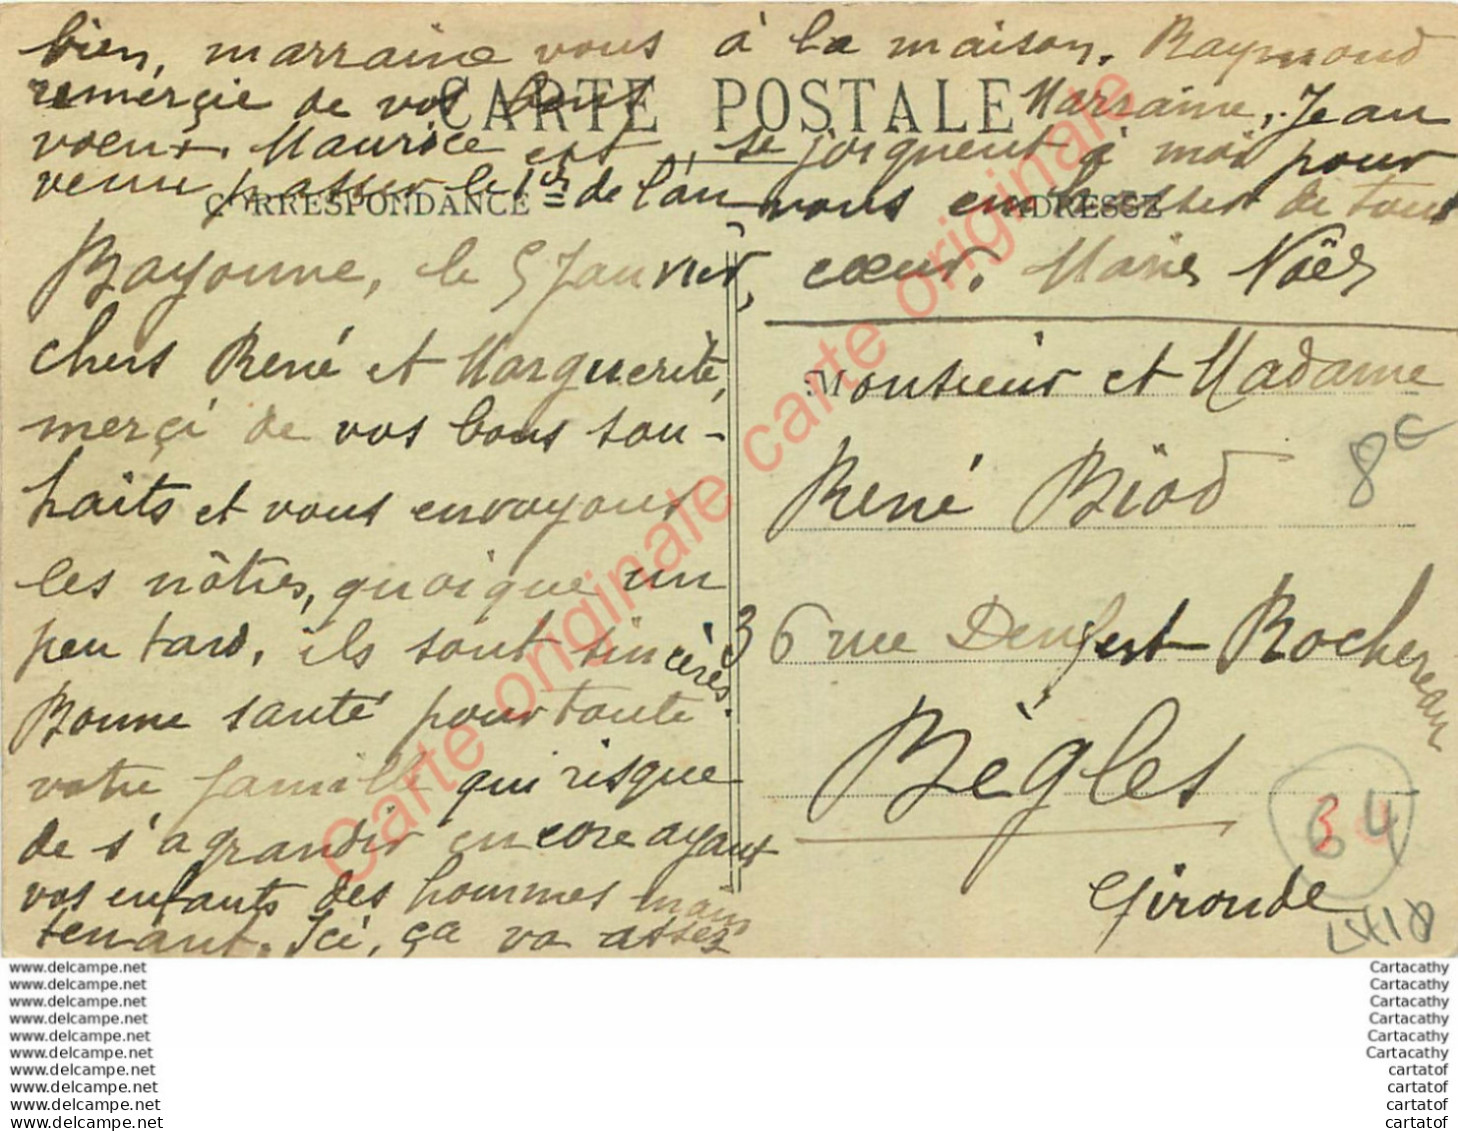 bien, marraine vous
remerçie de vos bons
voeux. Maurice est
venu passer le 1er de l'an
à la maison. Raymond
Marraine, Jean
se joignent à moi pour
vous embrasser de tout
cœur. Marie Noël
CARTE POSTALE
CORRESPONDANCE
ADRESSE
Bayonne, le 5 Janvier,
chers René et Marguerite,
merçi de vos bons sou-
haits et vous envoyons
les nôtres, quoique un
peu tard, ils sont sincères.
Bonne santé pour toute
votre famille qui risque
de s'agrandir encore ayant
vos enfants des hommes main
tenant. Ici, ça va assez
Monsieur et Madame
René Biod
36 rue Denfert-Rochereau
Bègles
Gironde
8€
34
Carte originale carte originale
www.delcampe.net
www.delcampe.net
www.delcampe.net
www.delcampe.net
www.delcampe.net
www.delcampe.net
www.delcampe.net
www.delcampe.net
www.delcampe.net
www.delcampe.net
Cartacathy
Cartacathy
Cartacathy
Cartacathy
Cartacathy
Cartacathy
cartatof
cartatof
cartatof
cartatof